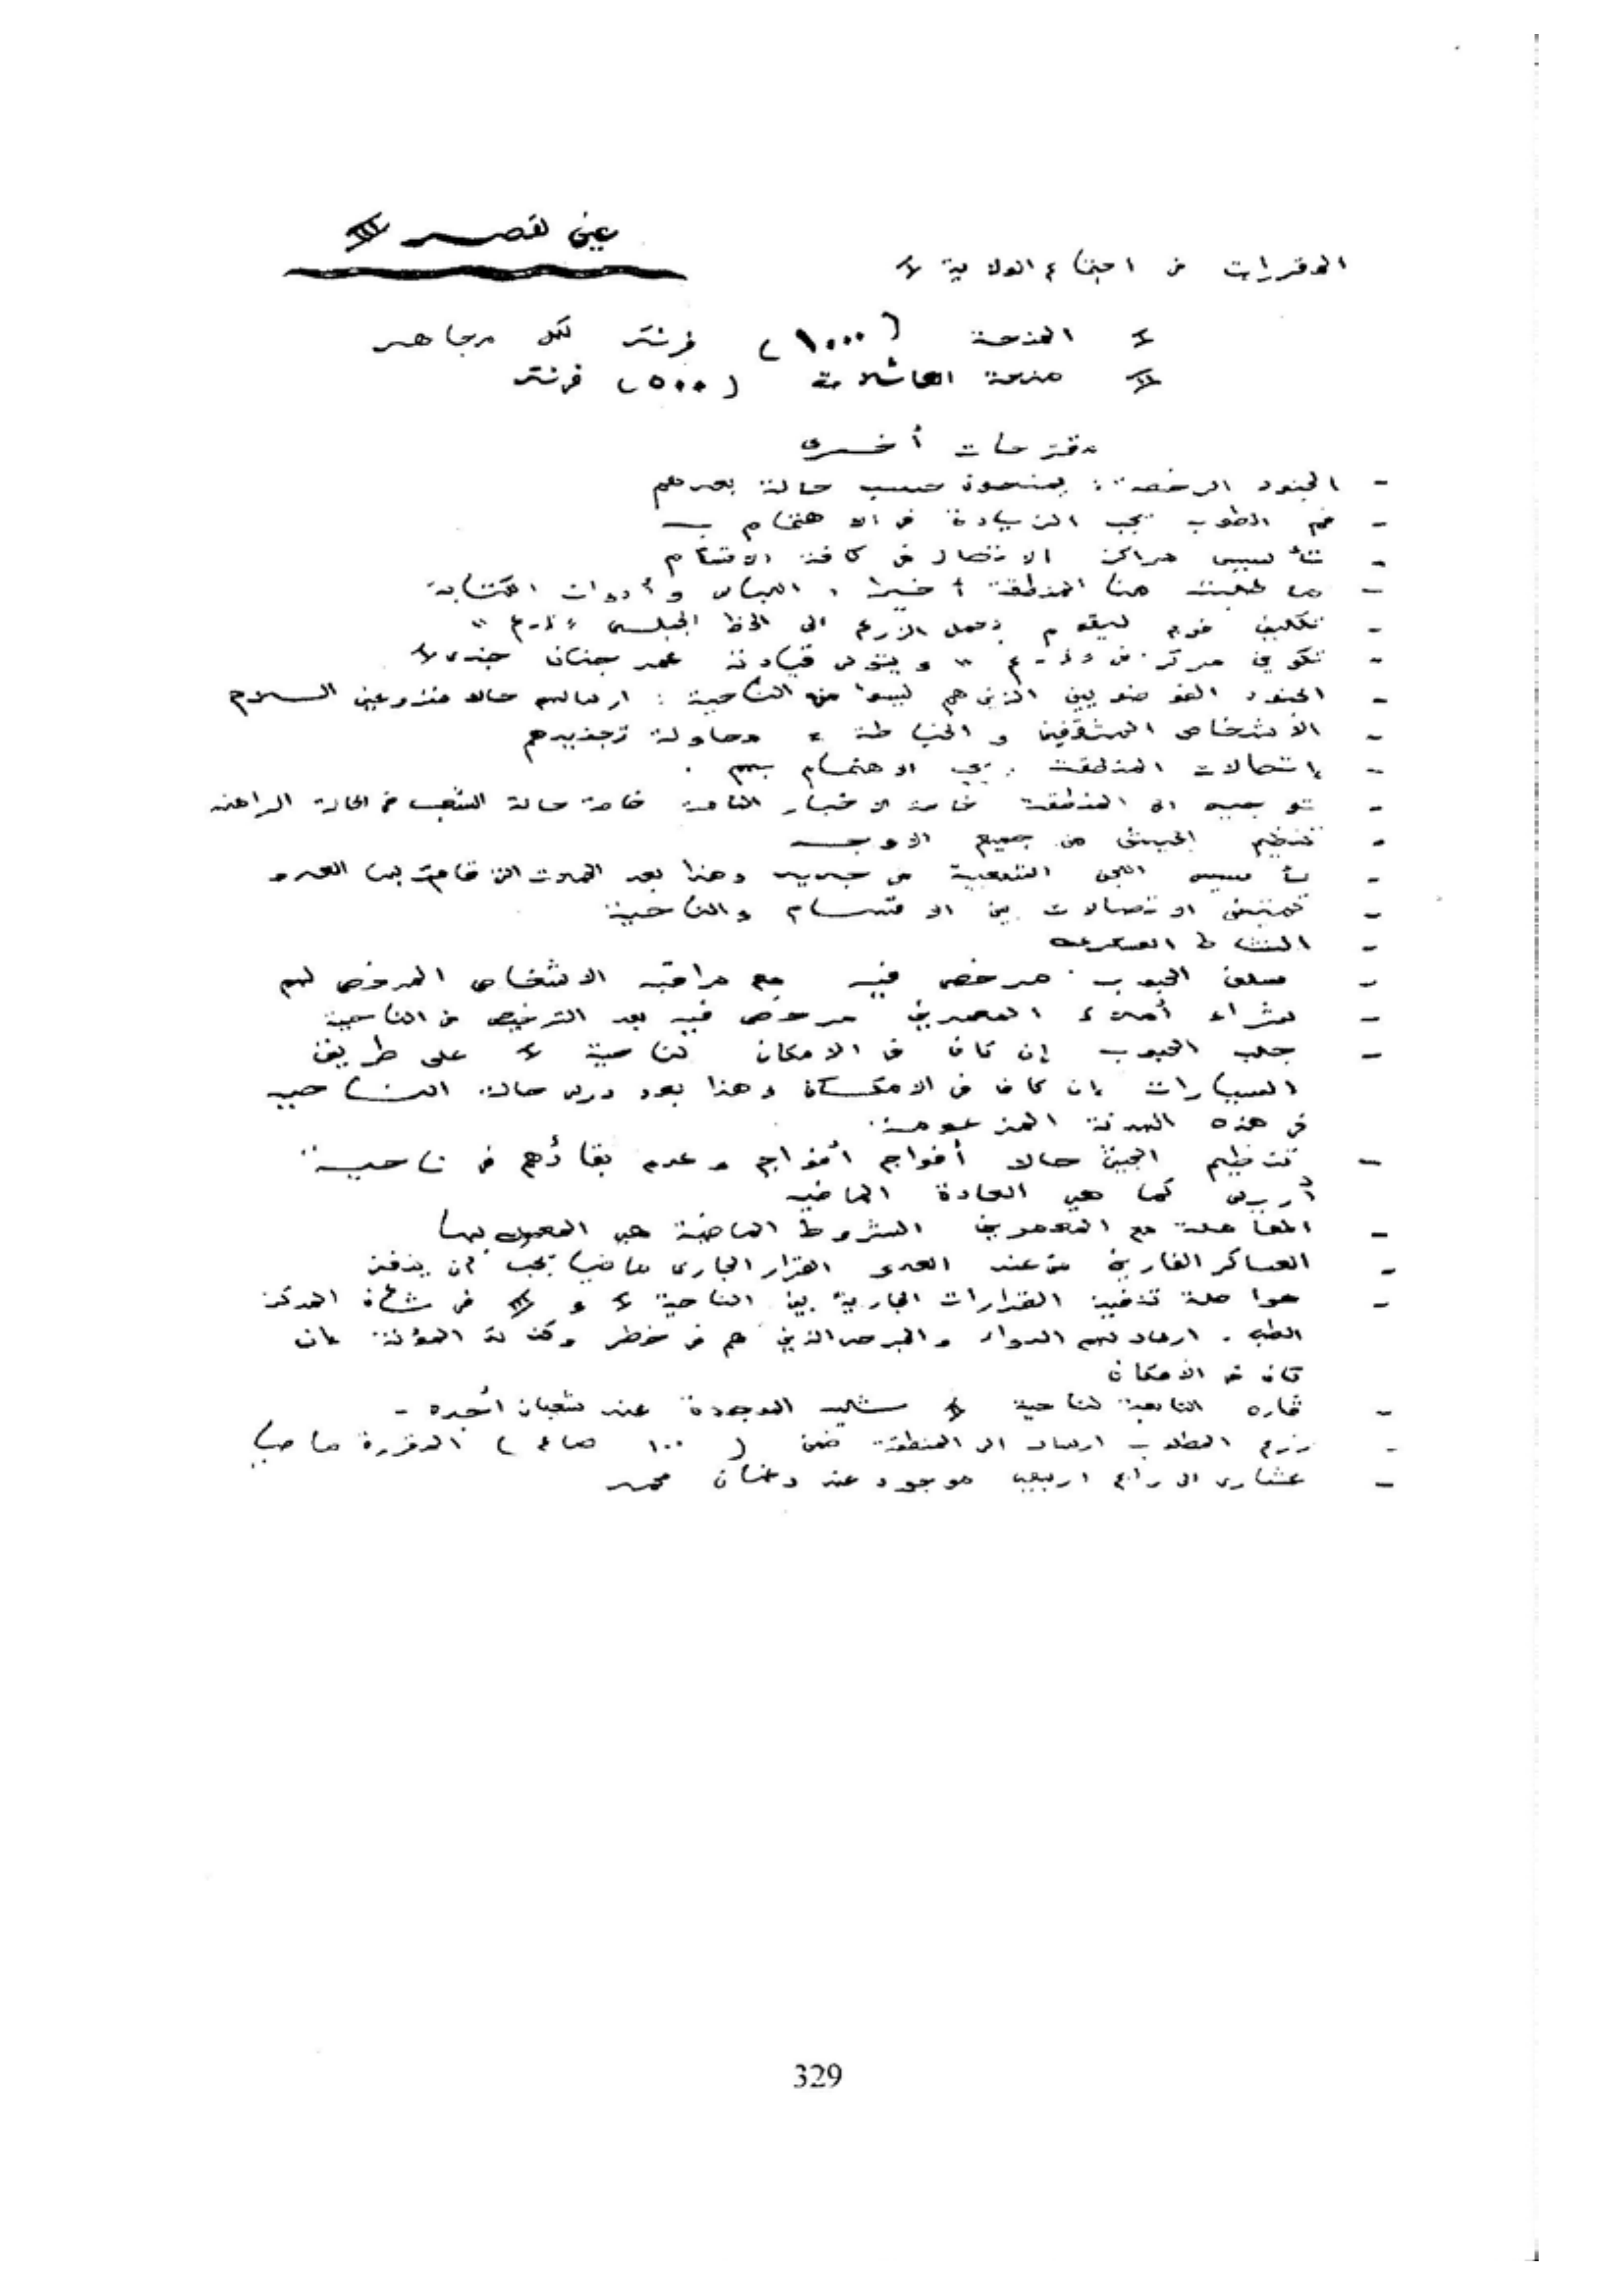 عين لقصر III
المقررات من اجتماع الولاية I
I المنحة (١٠٠٠) فرنك لكل مجاهد
II منحة العائلات (٥٠٠) فرنك
مقترحات أخرى
- الجنود الرخصة : يمنحون حسب حالة بعدهم
- فم الطوب يجب الزيادة في الاهتمام به
- تأسيس مراكز الاتصال في كافة الاقسام
- ما طلبت منا المنطقة أخيرا ، اللباس وأدوات الكتابة
- تكليف فوج ليقوم بحمل الزرع الى الخط الجبلي
- تكوين مركز في ويتولى قيادته عمر جنان جندي
- الجنود الفوضويين الذين هم ليسوا من الناحية : ارسالهم حالا منزوعين السلاح
- الأشخاص المثقفين و الخياطة ومحاولة تجنيدهم
- إتصالات المنطقة يجب الاهتمام بهم .
- توجيه الى المنطقة كافة الاخبار التامة خاصة حالة الشعب في الحالة الراهنة
- تنظيم الجيش من جميع الاوجه
- تأسيس اللجن الشعبية من جديد وهذا بعد العمليات التي قامت بها العدو
- تمتين الاتصالات بين الاقسام والناحية
- النشاط العسكري
- سلف الحبوب مرخص فيه مع مراقبة الاشخاص المرخص لهم
- بشراء المعمرين مرخص فيه بعد الترخيص من الناحية
- جلب الحبوب إن كان في الامكان لناحية I على طريق
السيارات إن كان في الامكان وهذا بعد درس حالة الناحية
في هذه الهدنة المزعومة.
- تنظيم الجيش حالا أفواج أفواج وعدم بقاؤهم في ناحية
أريس كما هي العادة الماضية
- المعاملة مع المعمرين الشروط الماضية هي المعمول بها
- العساكر الفارين من عند العدو القرار الجاري ماضيا يجب أن ينفذ
- مواصلة تنفيذ القرارات الجارية بين الناحية I و III في شأن المركز
الطبي . ارسال لهم الدواء والجرحى الذين هم في خطر وكذلك المؤنة إن
كان في الامكان
- التابعة لناحية I الموجودة عند شعبان أجده -
- زرع المطلوب ارساله الى المنطقة ضمن (١٠٠ صاع) المقررة ماضيا
- عشاري الى رابح اربيعي موجود عند دغنان محمد
329